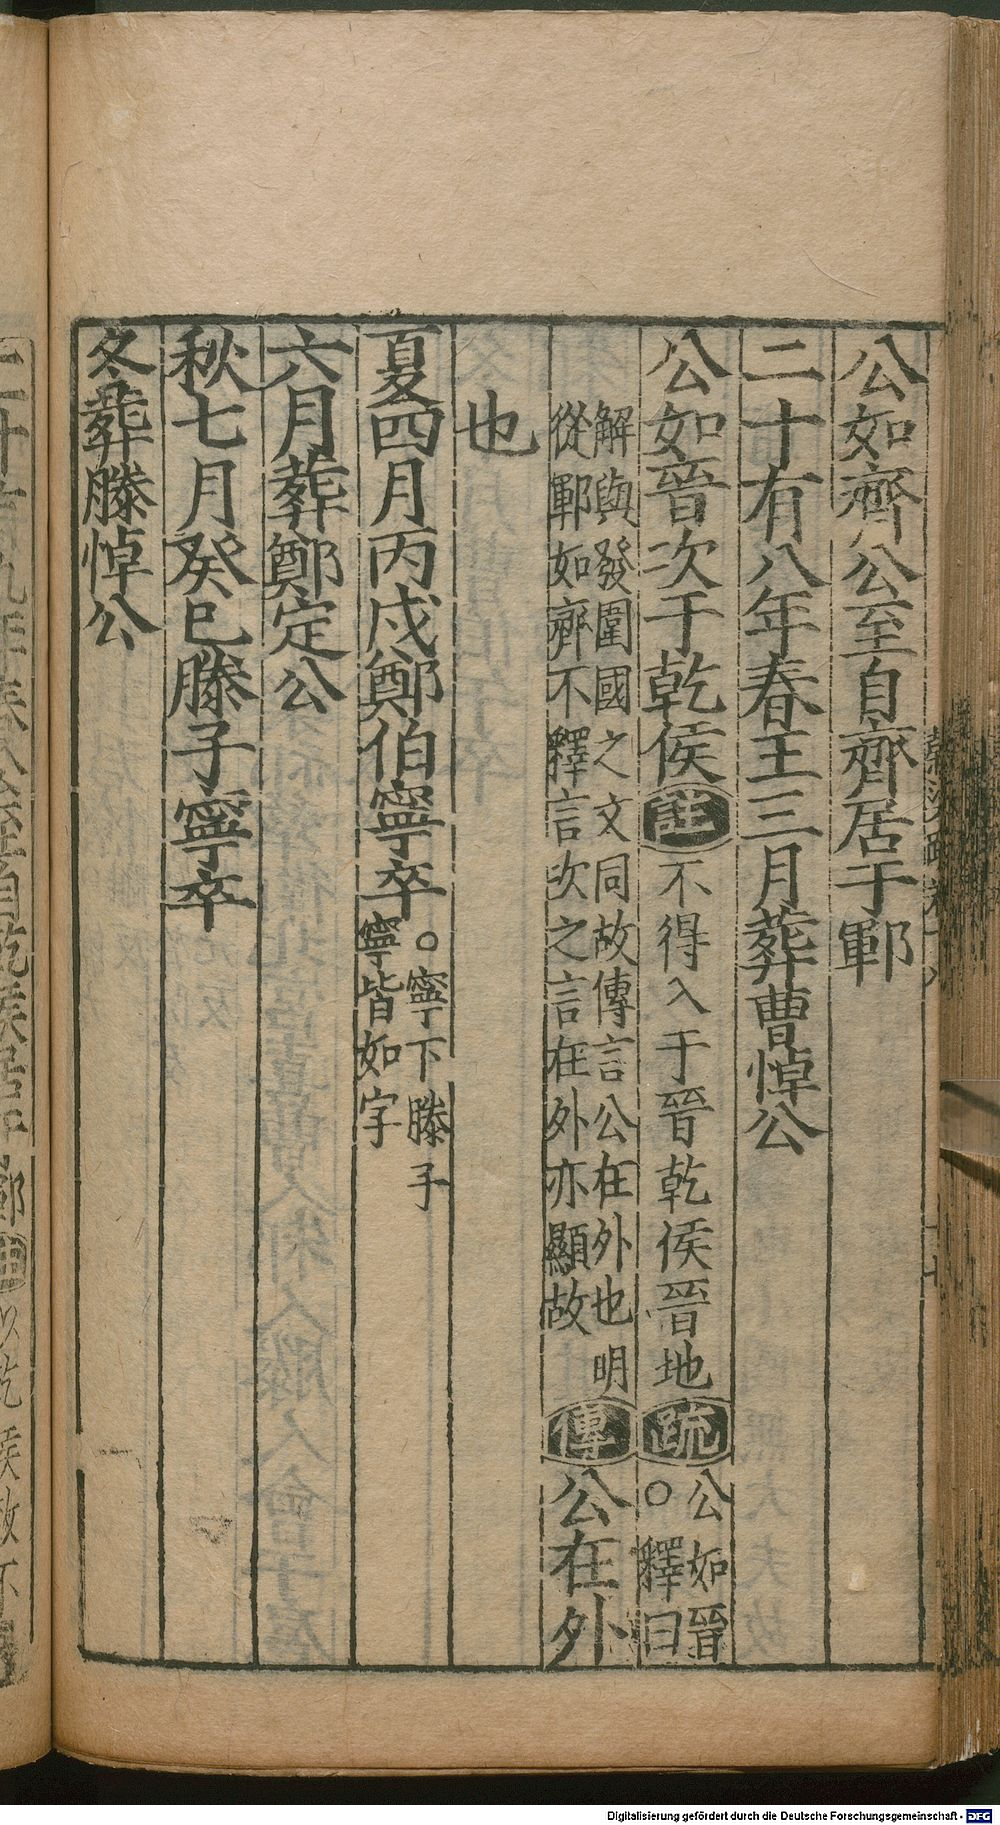 公如齊公至自齊居于鄆
二十有八年春王三月葬曹悼公
公如晉次于乾侯註不得入于晉乾侯晉地疏公如晉○釋曰
解與發圍國之文同故傳言公在外也明
從鄆如齊不釋言次之言在外亦顯故傳公在外
也
夏四月丙戌鄭伯寧卒○寧下滕子
寧皆如字
六月葬鄭定公
秋七月癸巳滕子寧卒
冬葬滕悼公
Digitalisierung gefördert durch die Deutsche Forschungsgemeinschaft - DFG